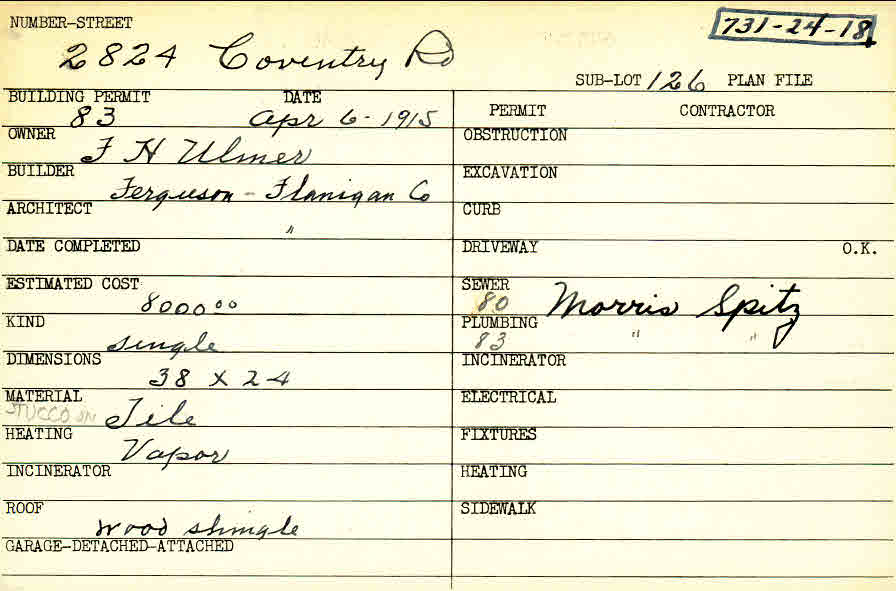 NUMBER-STREET
731-24-18
2824 Coventry Rd
SUB-LOT 126 PLAN FILE
BUILDING PERMIT DATE
83 Apr 6-1915
OWNER
F H Ulmer
BUILDER
Ferguson - Flanigan Co
ARCHITECT
"
DATE COMPLETED
ESTIMATED COST
8000 00
KIND
single
DIMENSIONS
38 x 24
MATERIAL
STUCCO ON Tile
HEATING
Vapor
INCINERATOR
ROOF
wood shingle
GARAGE-DETACHED-ATTACHED
PERMIT CONTRACTOR
OBSTRUCTION
EXCAVATION
CURB
DRIVEWAY O.K.
SEWER
80 Morris Spitz
PLUMBING
83 " "
INCINERATOR
ELECTRICAL
FIXTURES
HEATING
SIDEWALK